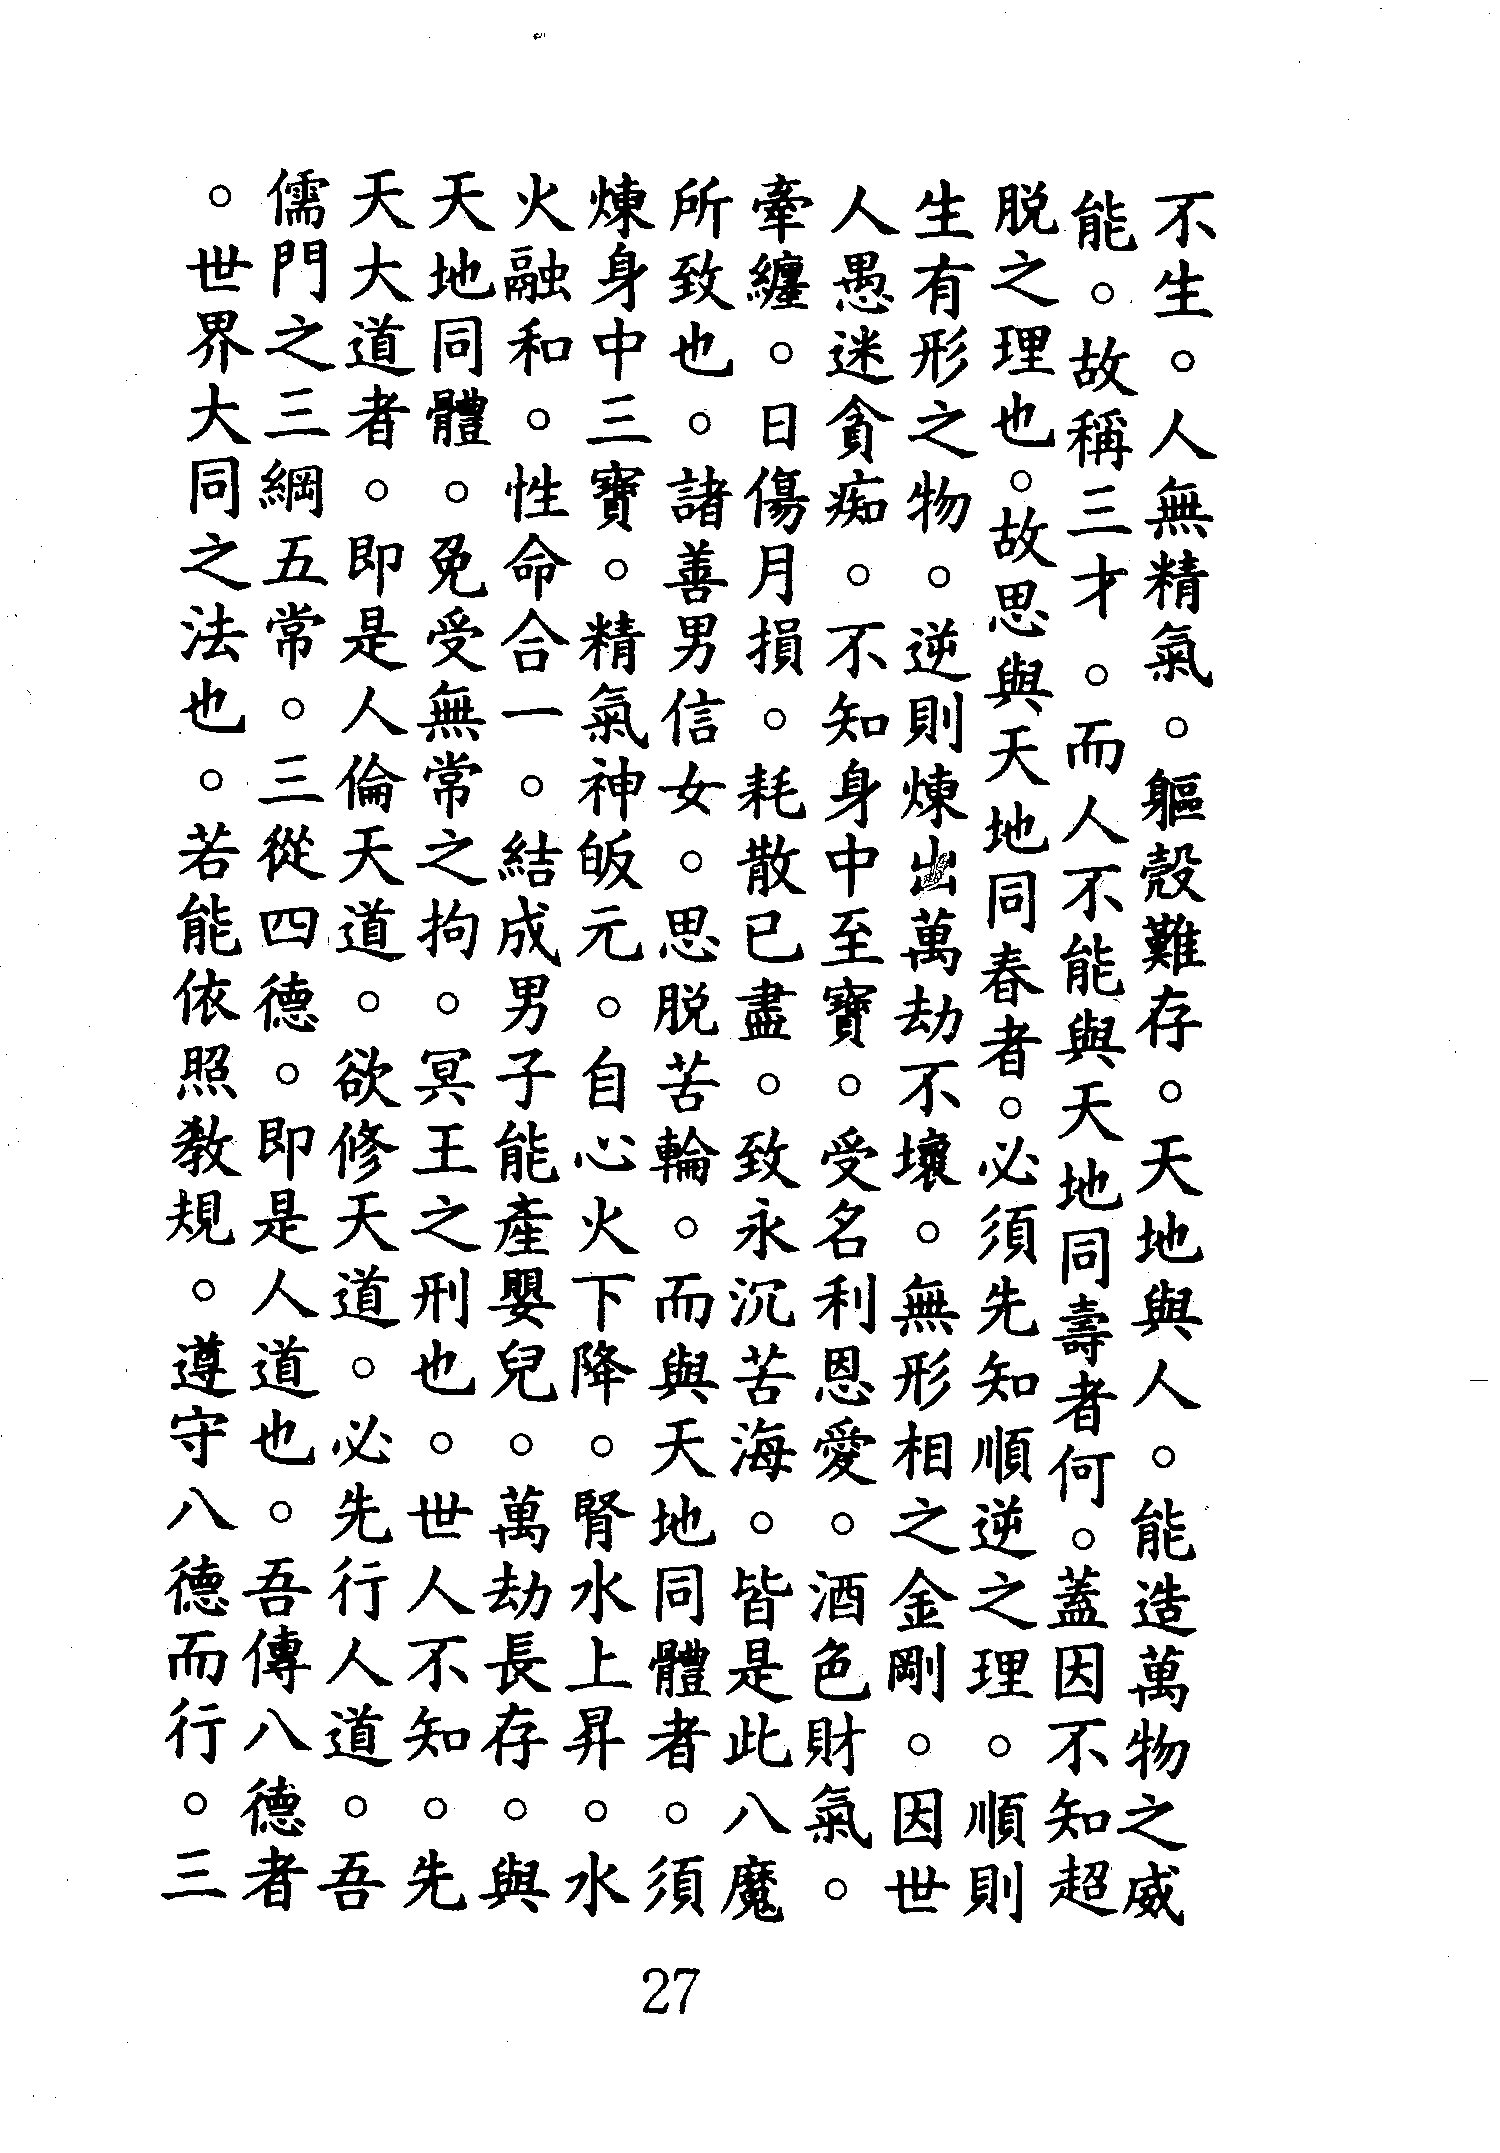 不生。人無精氣。軀殼難存。天地與人。能造萬物之威
能。故稱三才。而人不能與天地同壽者何。蓋因不知超
脫之理也。故思與天地同春者。必須先知順逆之理。順則
生有形之物。逆則煉出萬劫不壞。無形相之金剛。因世
人愚迷貪痴。不知身中至寶。受名利恩愛。酒色財氣。
牽纏。日傷月損。耗散已盡。致永沉苦海。皆是此八魔
所致也。諸善男信女。思脫苦輪。而與天地同體者。須
煉身中三寶。精氣神皈元。自心火下降。腎水上昇。水
火融和。性命合一。結成男子能產嬰兒。萬劫長存。與
天地同體。免受無常之拘。冥王之刑也。世人不知。先
天大道者。即是人倫天道。欲修天道。必先行人道。吾
儒門之三綱五常。三從四德。即是人道也。吾傳八德者
。世界大同之法也。若能依照教規。遵守八德而行。三
27